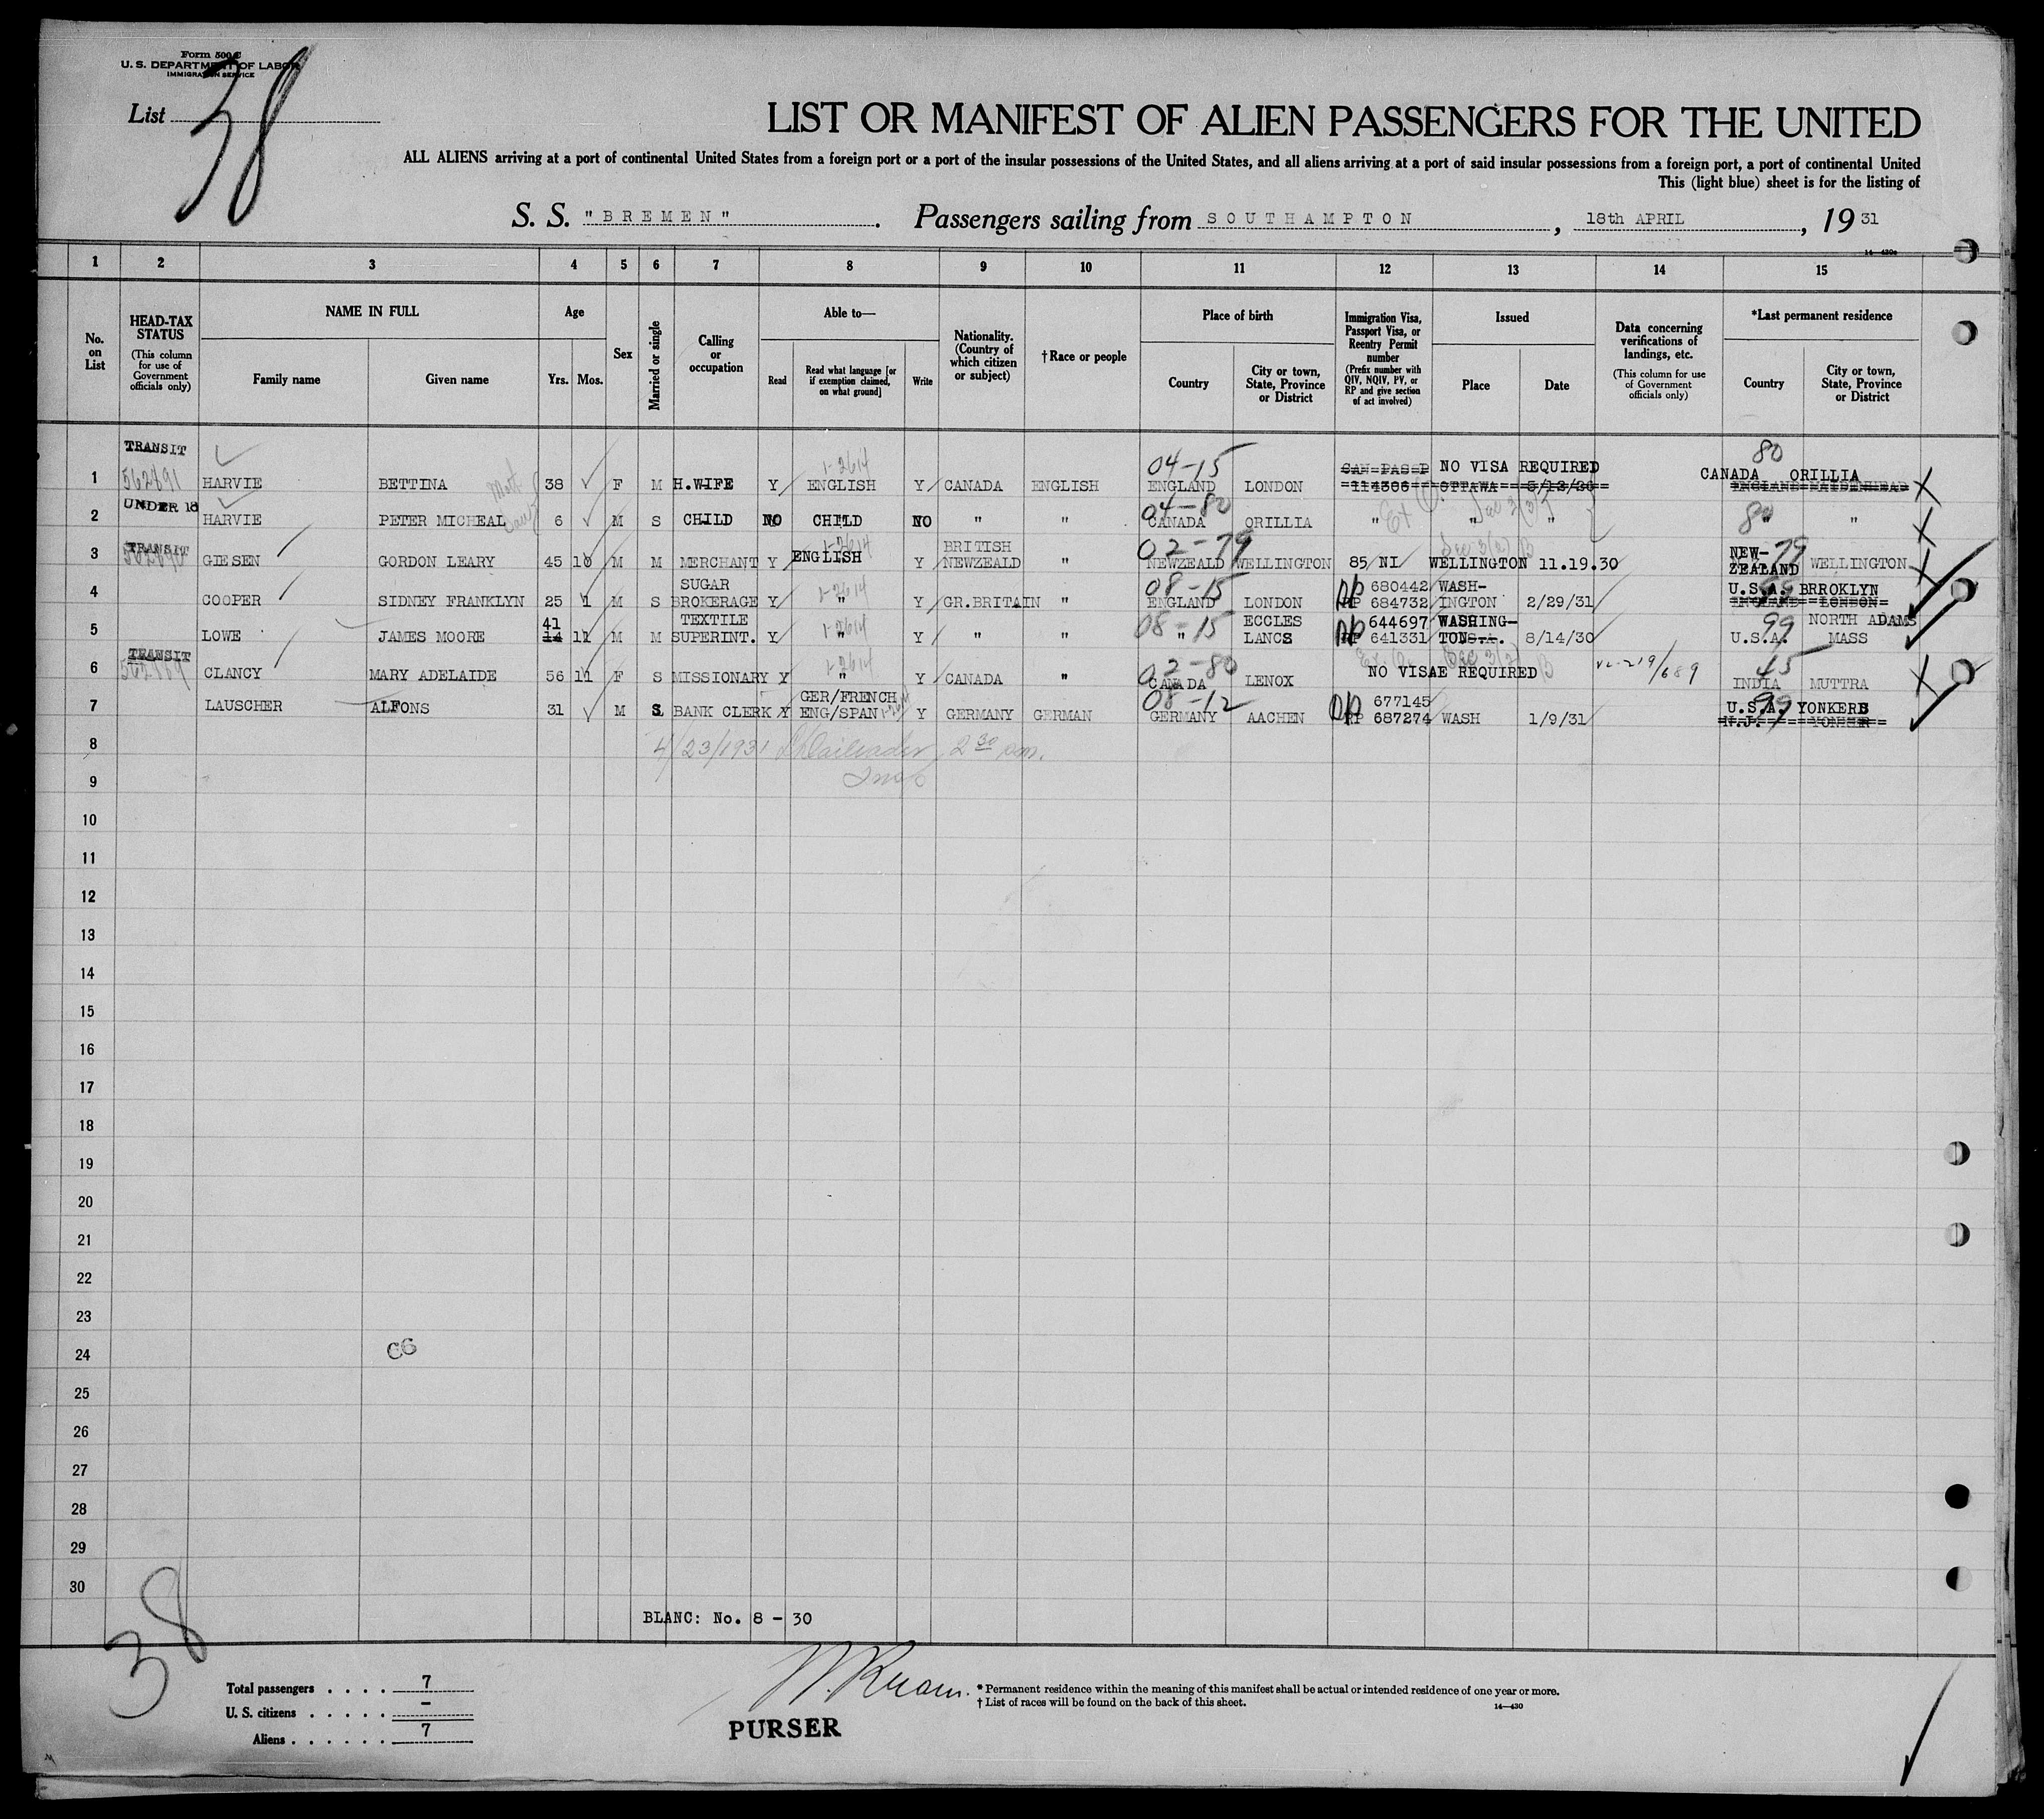 Form 500 C
U. S. DEPARTMENT OF LABOR
IMMIGRATION SERVICE
List 38
LIST OR MANIFEST OF ALIEN PASSENGERS FOR THE UNITED
ALL ALIENS arriving at a port of continental United States from a foreign port or a port of the insular possessions of the United States, and all aliens arriving at a port of said insular possessions from a foreign port, a port of continental United
This (light blue) sheet is for the listing of
S. S. "BREMEN". Passengers sailing from SOUTHAMPTON, 18th APRIL, 19 31
1 2 3 4 5 6 7 8 9 10 11 12 13 14 15
No. on List
HEAD-TAX STATUS (This column for use of Government officials only)
NAME IN FULL
Family name
Given name
Age
Yrs. Mos.
Sex
Married or single
Calling or occupation
Able to—
Read
Read what language [or if exemption claimed, on what ground]
Write
Nationality. (Country of which citizen or subject)
† Race or people
Place of birth
Country
City or town, State, Province or District
Immigration Visa, Passport Visa, or Reentry Permit number (Prefix number with QIV, NQIV, PV, or RP and give section of act involved)
Issued
Place
Date
Data concerning verifications of landings, etc. (This column for use of Government officials only)
*Last permanent residence
Country
City or town, State, Province or District
TRANSIT 1-2614 04-15 80
1 562891 HARVIE BETTINA 38 F M H.WIFE Y ENGLISH Y CANADA ENGLISH ENGLAND LONDON CAN-PASP 114306 NO VISA REQUIRED OTTAWA 5/12/30 CANADA ORILLIA ENGLAND MAIDENHEAD
UNDER 18 04-80
2 HARVIE PETER MICHEAL 6 M S CHILD NO CHILD NO " " CANADA ORILLIA " " " 80 " "
TRANSIT 1-2614 BRITISH 02-79 Sec 3(2) NEW- 79
3 GIESEN GORDON LEARY 45 10 M M MERCHANT Y ENGLISH Y NEWZEALD " NEWZEALD WELLINGTON 85/NI WELLINGTON 11.19.30 ZEALAND WELLINGTON
SUGAR 1-2614 08-15 680442 WASH- U.S.A. BRROKLYN
4 COOPER SIDNEY FRANKLYN 25 1 M S BROKERAGE Y " Y GR.BRITAIN " ENGLAND LONDON RP 684732 INGTON 2/29/31 ENGLAND LONDON
41 TEXTILE 1-2614 08-15 ECCLES 644697 WASHING- 99 NORTH ADAMS
5 LOWE JAMES MOORE 14 11 M M SUPERINT. Y " Y " " " LANCS RP 641331 TON 8/14/30 U.S.A. MASS
TRANSIT 1-2614 02-80 Sec 3(2) 45
6 CLANCY MARY ADELAIDE 56 11 F S MISSIONARY Y " Y CANADA " CANADA LENOX NO VISAE REQUIRED INDIA MUTTRA
GER/FRENCH 08-12 677145 99 U.S.A. YONKERS
7 LAUSCHER ALFONS 31 M S BANK CLERK Y ENG/SPAN Y GERMANY GERMAN GERMANY AACHEN RP 687274 WASH 1/9/31 N.J. YONKER
8 4/23/1931 2 30 pm.
9 Insp
10
11
12
13
14
15
16
17
18
19
20
21
22
23
24 C6
25
26
27
28
29
30
BLANC: No. 8 - 30
38
Total passengers . . . . 7
U. S. citizens . . . . . –
Aliens . . . . . . 7
PURSER
* Permanent residence within the meaning of this manifest shall be actual or intended residence of one year or more.
† List of races will be found on the back of this sheet.
14—430